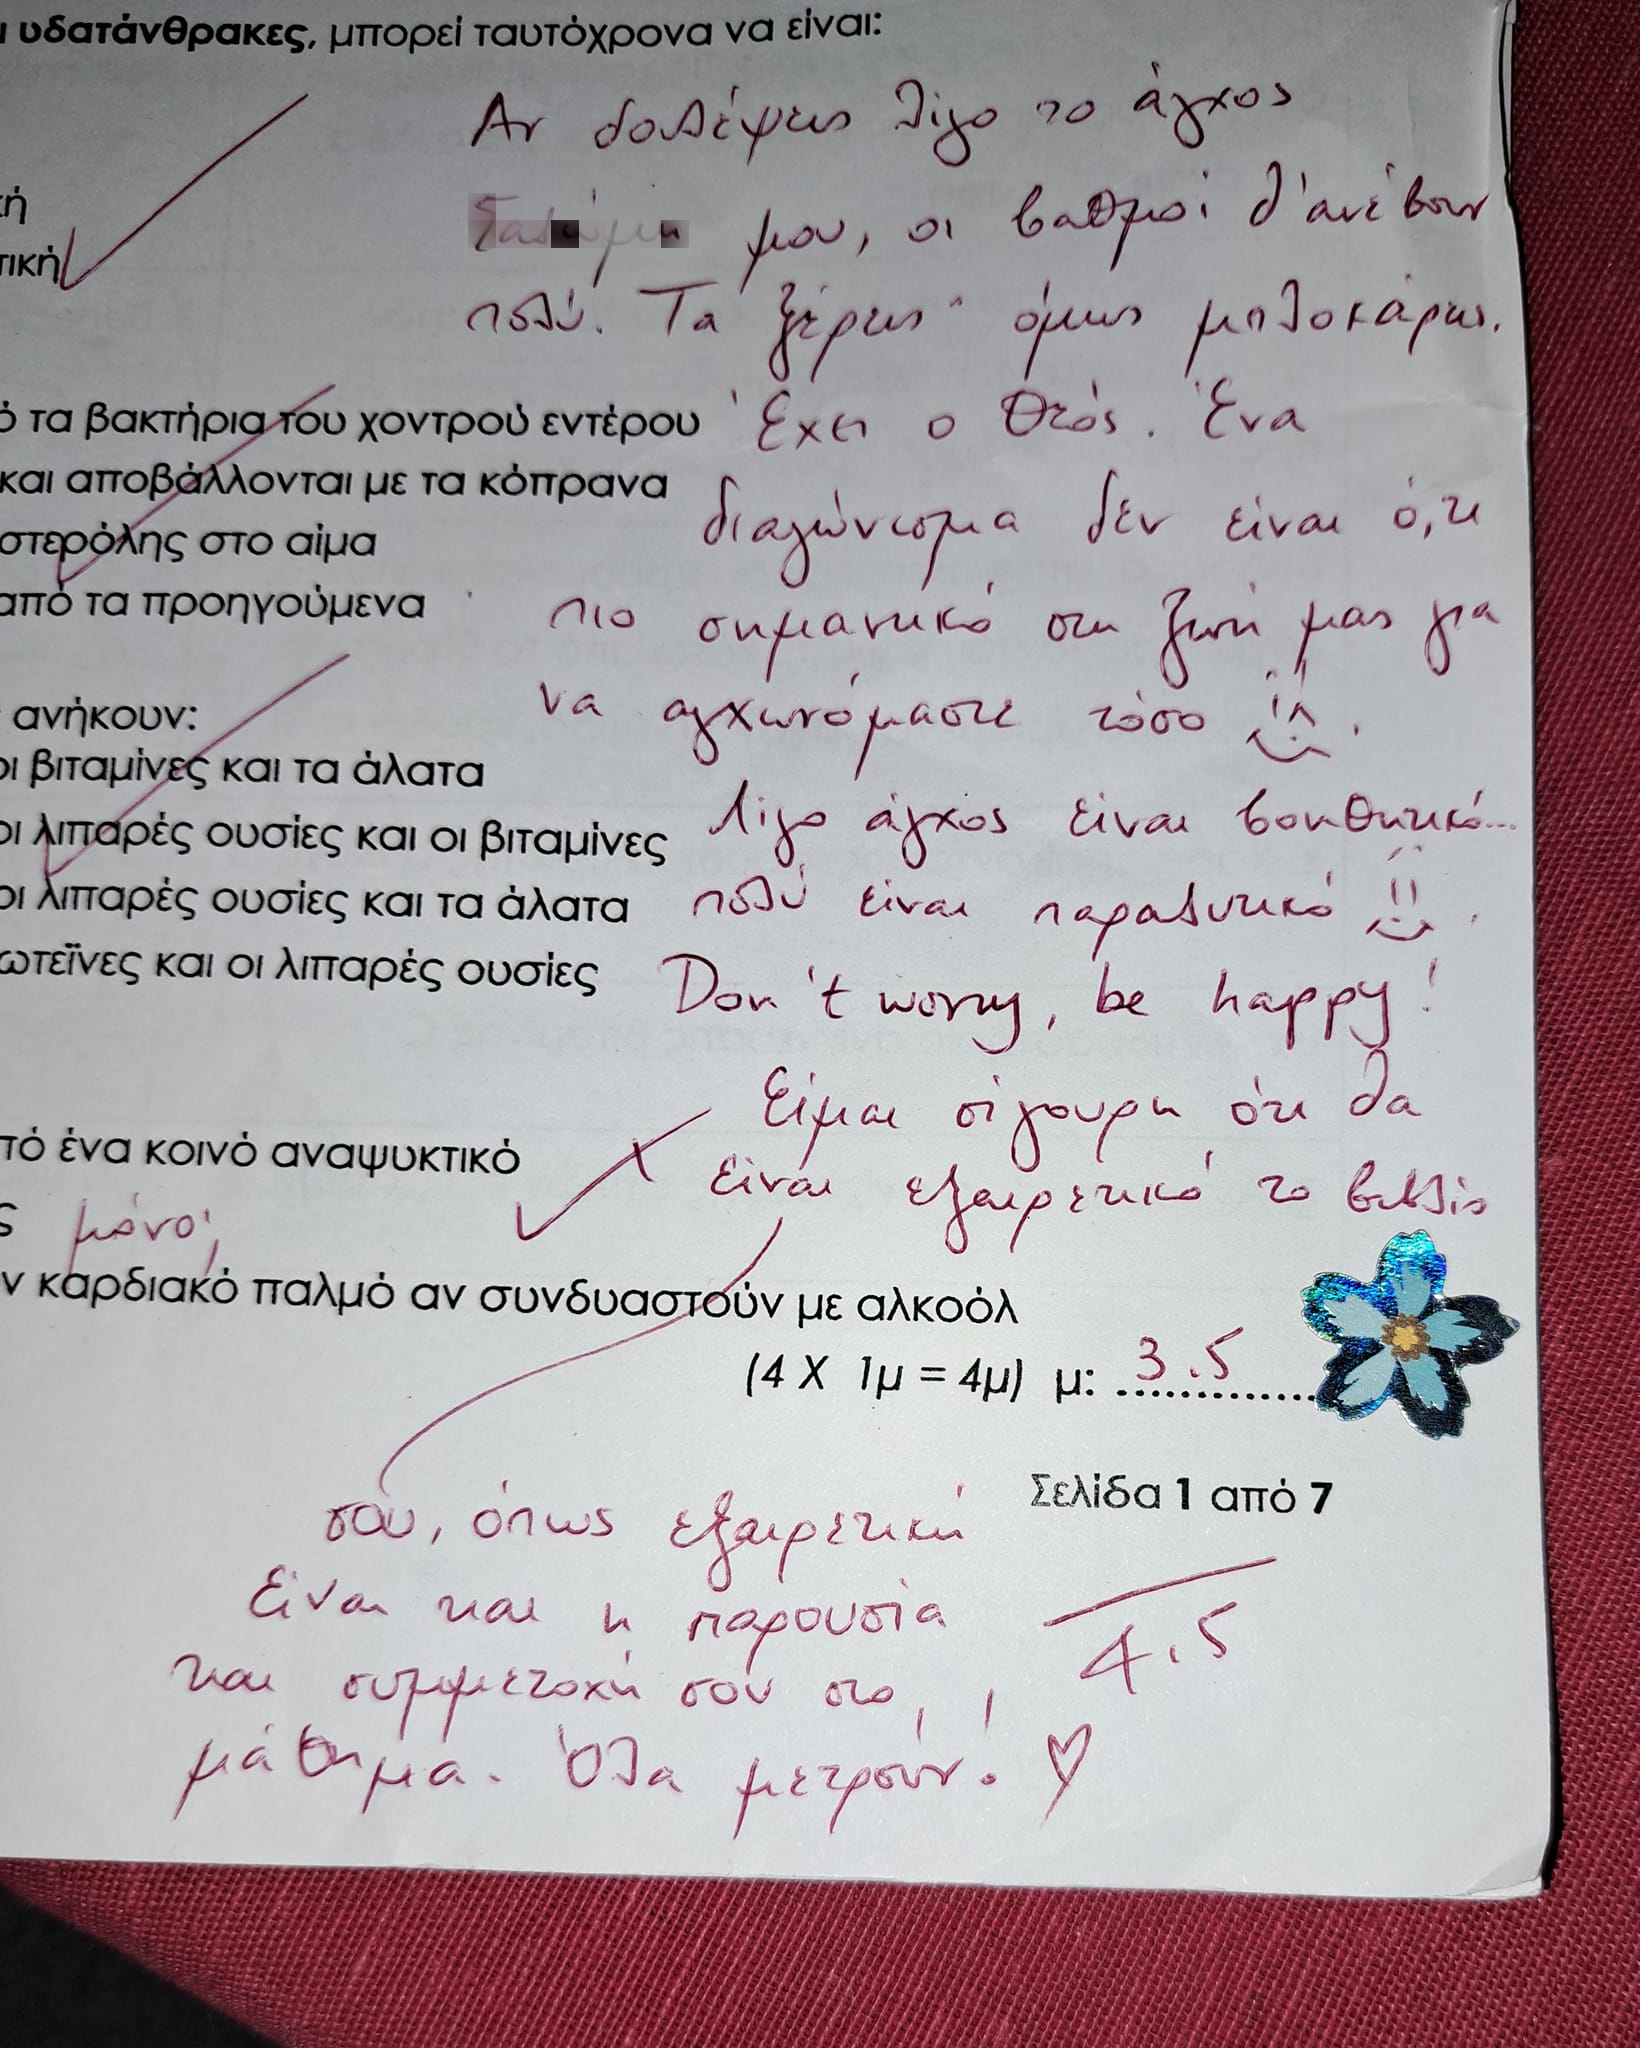 υδατάνθρακες, μπορεί ταυτόχρονα να είναι:
Αν δουλέψεις λίγο το άγχος
μου, οι βαθμοί θ' ανέβουν
πολύ. Τα ξέρεις όμως μπλοκάρεις.
τα βακτήρια του χοντρού εντέρου
Έχει ο Θεός. Ένα
και αποβάλλονται με τα κόπρανα
διαγώνισμα δεν είναι ό,τι
στο αίμα
από τα προηγούμενα
πιο σημαντικό στη ζωή μας για
να αγχωνόμαστε τόσο
ανήκουν:
οι βιταμίνες και τα άλατα
Λίγο άγχος είναι βοηθητικό...
οι λιπαρές ουσίες και οι βιταμίνες
οι λιπαρές ουσίες και τα άλατα
πολύ είναι παραλυτικό
και οι λιπαρές ουσίες
Don't worry, be happy!
Είμαι σίγουρη ότι θα
ένα κοινό αναψυκτικό
είναι εξαιρετικό το βιβλίο
μόνο;
καρδιακό παλμό αν συνδυαστούν με αλκοόλ
(4 Χ 1μ = 4μ) μ: 3.5
Σελίδα 1 από 7
σου, όπως εξαιρετική
είναι και η παρουσία
4.5
και συμμετοχή σου στο
μάθημα. Όλα μετρούν!